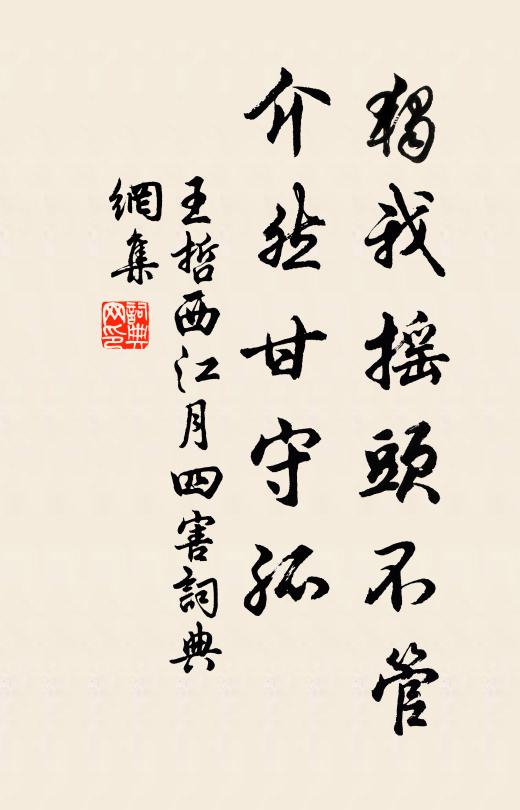 獨我摇頭不管
介然甘守孤
王哲西江月四害詞典
網集
詞典
网印